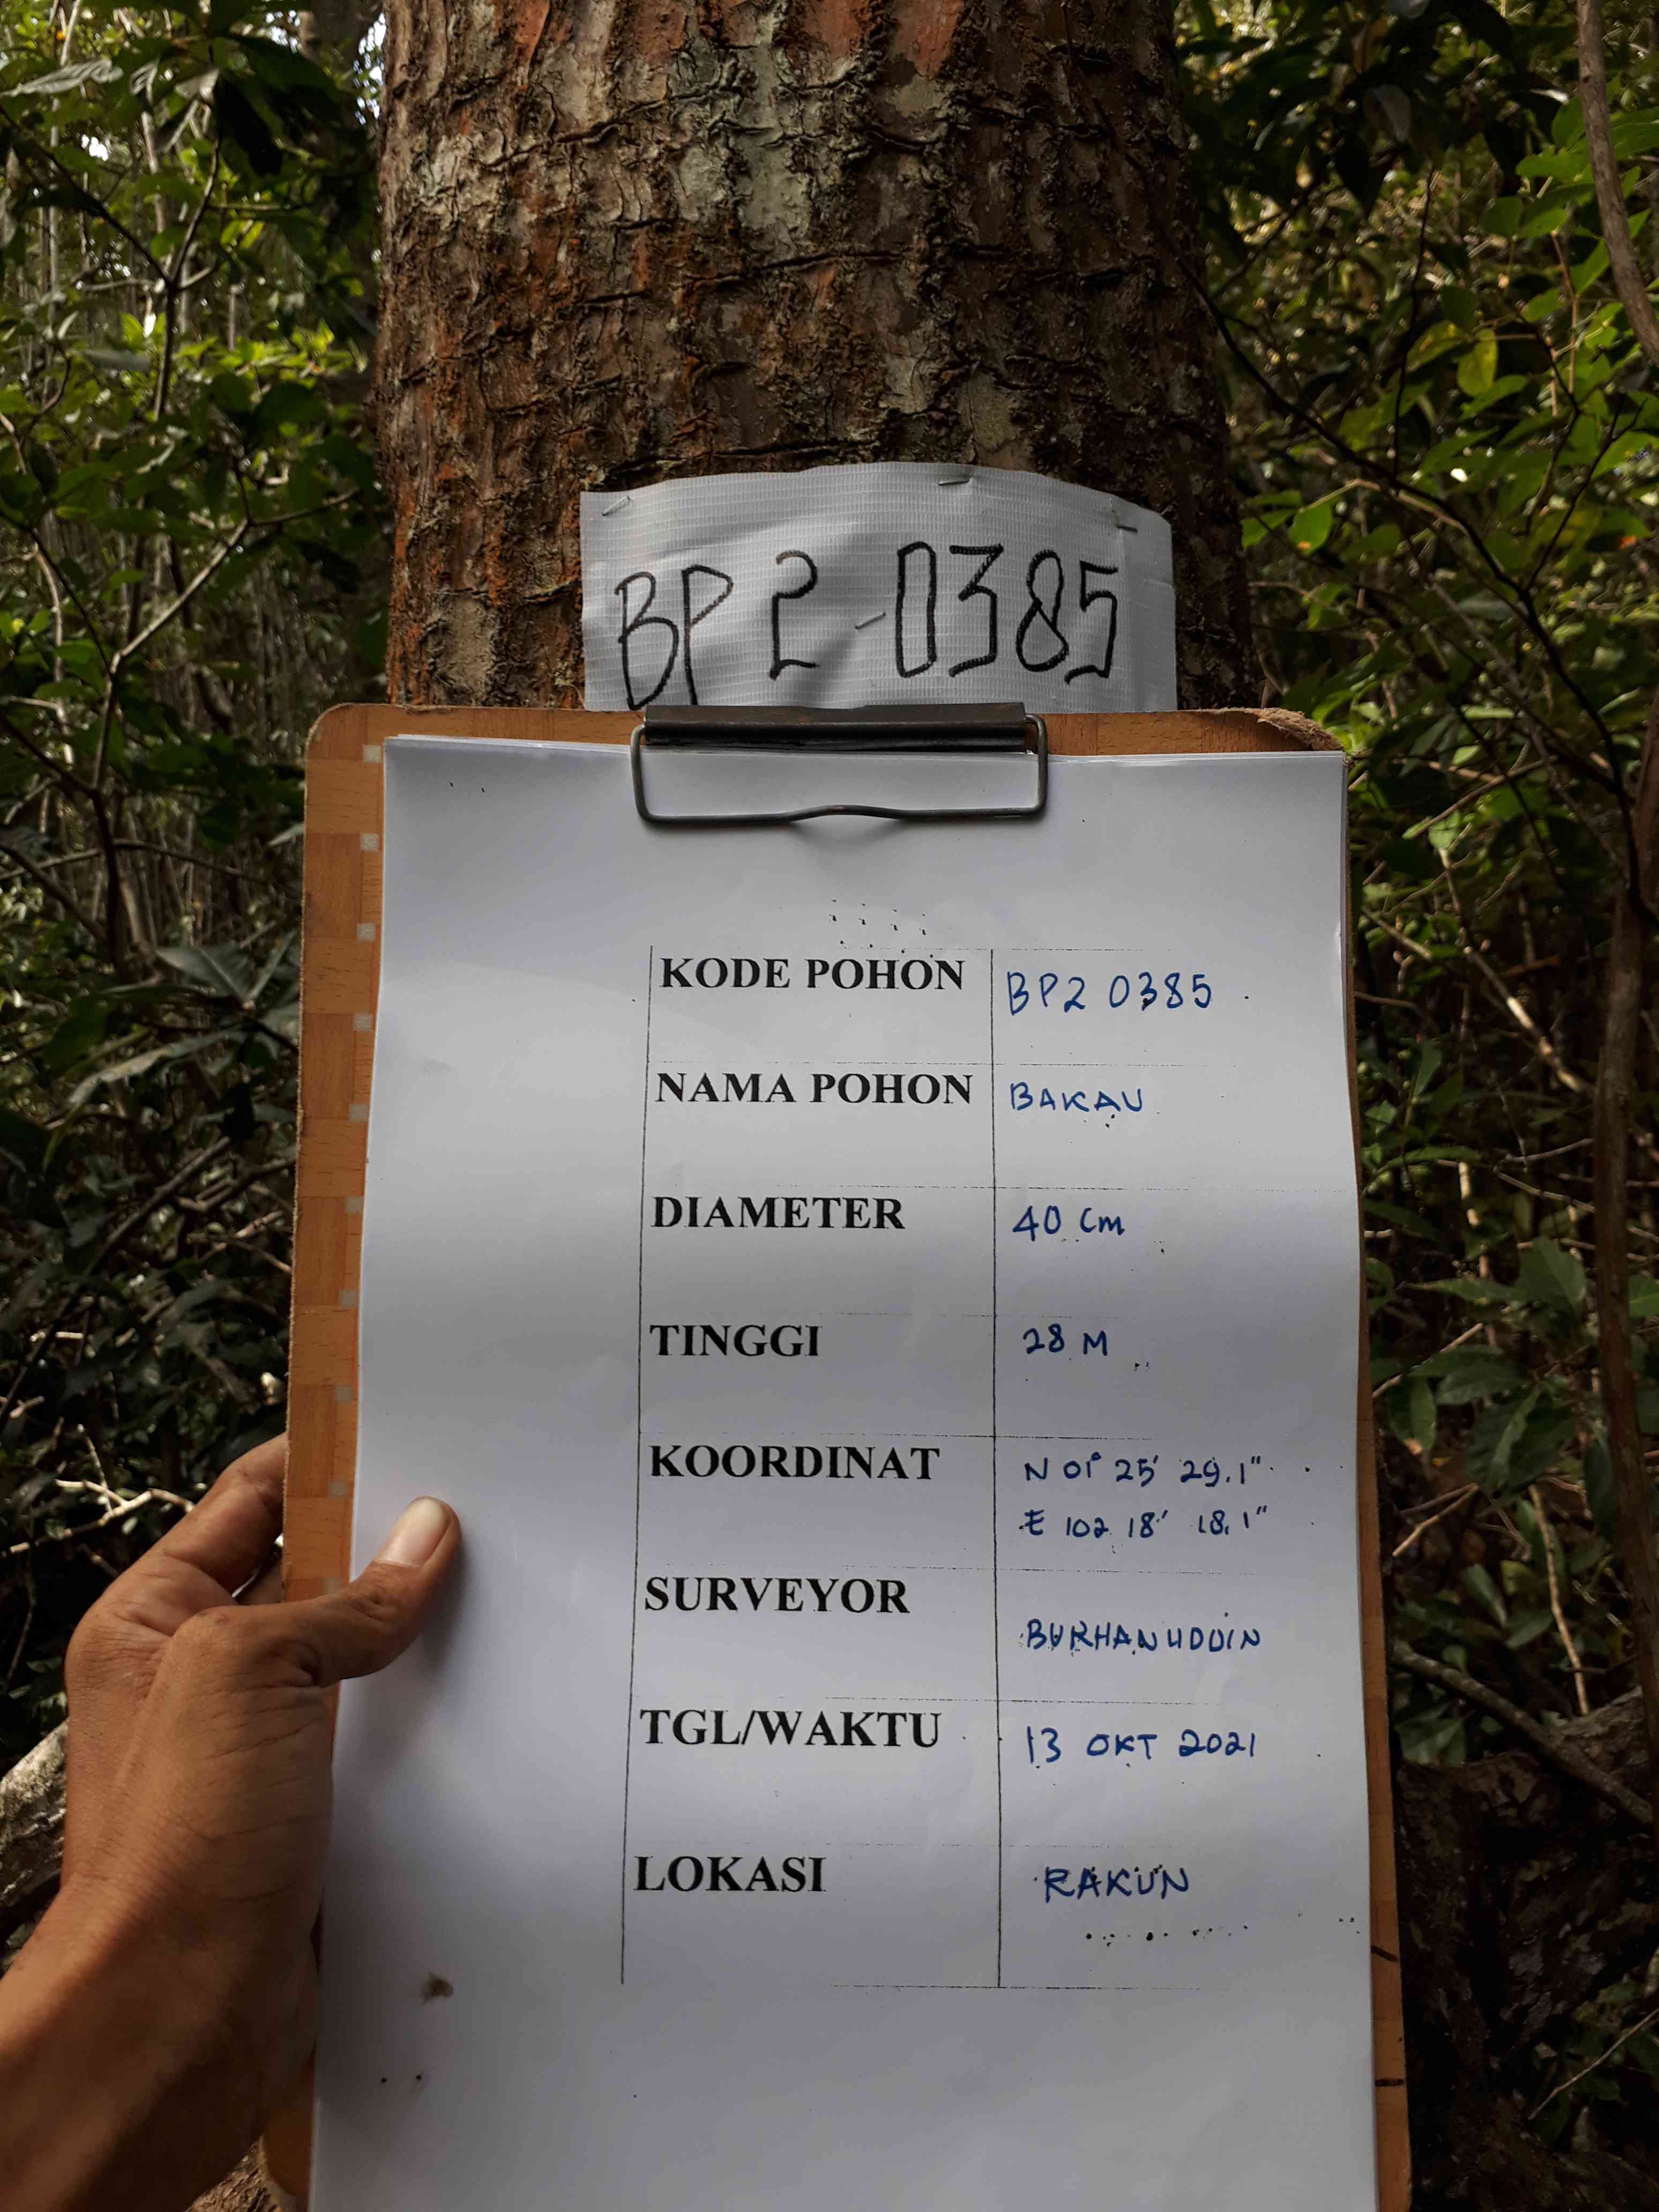 BP 2 0385
KODE POHON BP2 0385
NAMA POHON BAKAU
DIAMETER 40 Cm
TINGGI 28 M
KOORDINAT N 01° 25' 29.1"
E 102 18' 18.1"
SURVEYOR BURHANUDDIN
TGL/WAKTU 13 OKT 2021
LOKASI RAKUN